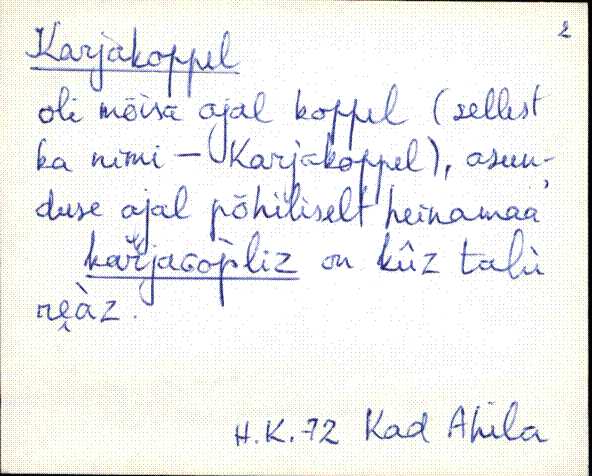 2
Karjakoppel
oli mõisa ajal koppel (sellest
ka nimi — Karjakoppel), asun-
duse ajal põhiliselt heinamaa,
kařjaGòp̆liz on kûz talù
reàz.
H.K.72 Kad Ahila